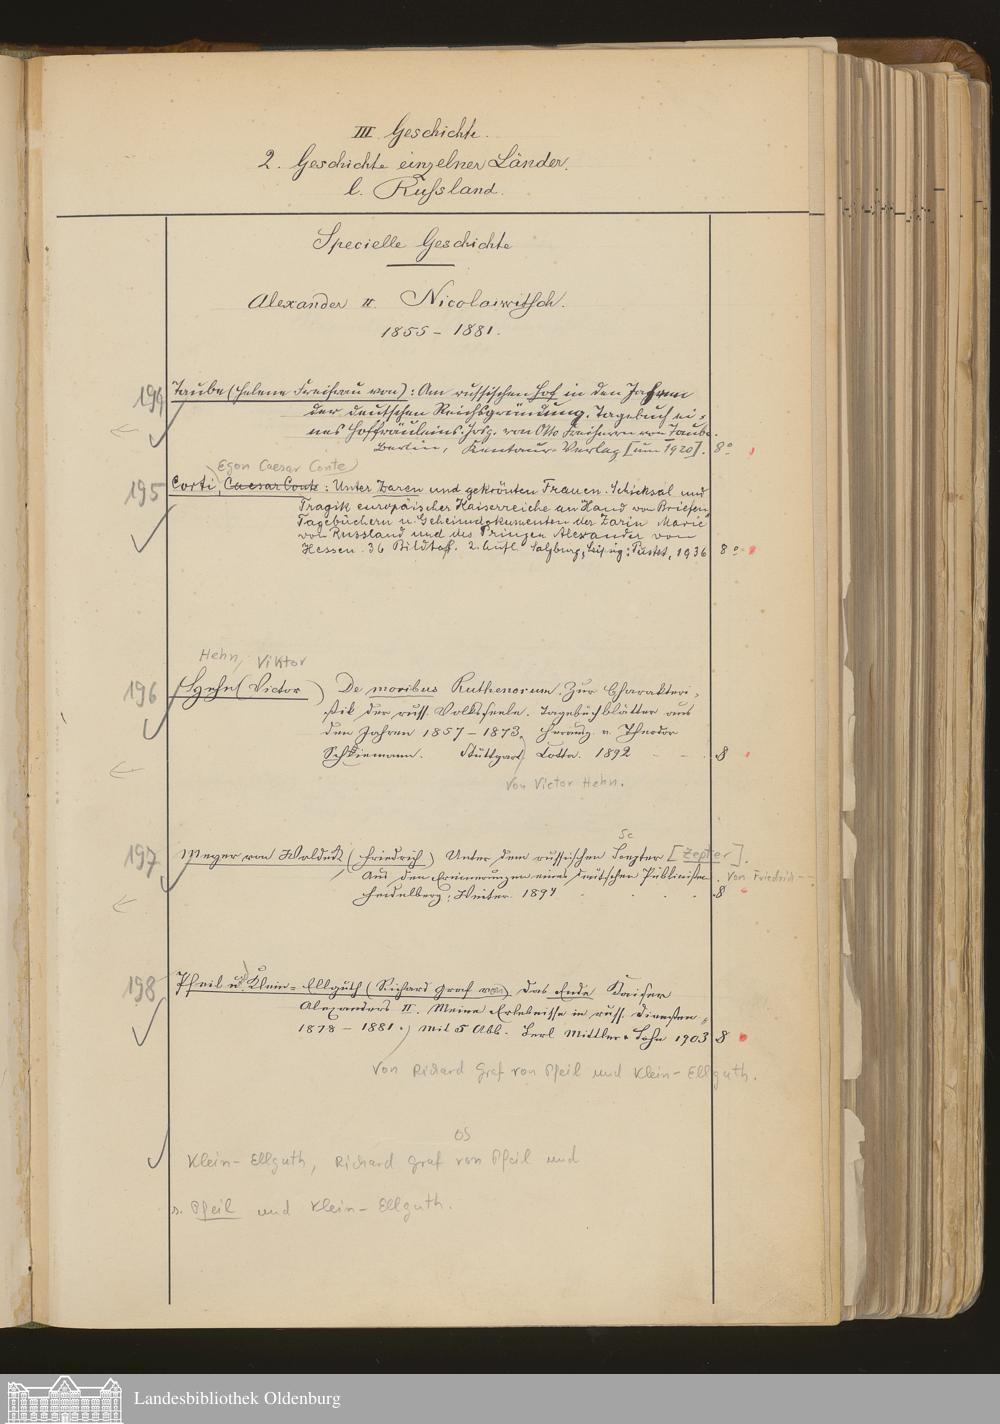 III Geschichte.
2. Geschichte einzelner Länder.
l. Russland.
Specielle Geschichte
Alexander II. Nicolaiwitsch.
1855 – 1881.
194 Taube (Helene Freifrau von): Am russischen Hof in den Jahren
der deutschen Reichsgründung. Tagebuch ei-
nes Hoffräuleins. Hrsg. von Otto Freiherrn von Taube.
Berlin, Kentaur-Verlag [um 1920]. 8°
Egon Caesar Conte
195 Corti, Caesar Conte: Unter Zaren und gekrönten Frauen. Schicksal und
Tragik europäischer Kaiserreiche an Hand von Briefen,
Tagebüchern u. Geheimdokumenten der Zarin Marie
von Russland und des Prinzen Alexander von
Hessen. 36 Bildtaf. 2. Aufl. Salzburg, Leipzig: Pustet, 1936 8°
Hehn, Viktor
196 Hehn (Victor) De moribus Ruthenorum. Zur Charakteri-
stik der russ. Volksseele. Tagebuchblätter aus
den Jahren 1857 – 1873. Herausg. v. Theodor
Schiemann. Stuttgart, Cotta. 1892 8
von Victor Hehn.
Sc
197 Meyer von Waldeck (Friedrich) Unter dem russischen Scepter [Zepter].
Aus den Erinnerungen eines deutschen Publicisten. von Friedrich
Heidelberg, Winter. 1894 8
198 Pfeil u. Klein-Ellguth (Richard Graf von) Das Ende Kaiser
Alexanders II. Meine Erlebnisse in russ. Diensten,
1878 – 1881. mit 5 Abb. Berl Mittler & Sohn 1903 8
von Richard Graf von Pfeil und Klein-Ellguth.
OS
Klein-Ellguth, Richard Graf von Pfeil und
s. Pfeil und Klein-Ellguth.
Landesbibliothek Oldenburg